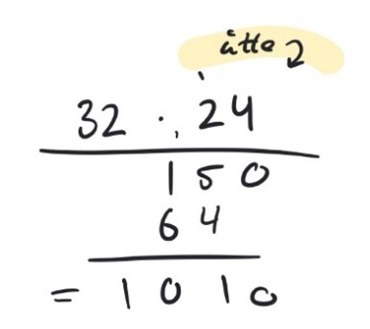 åtte
32 · 24
150
64
= 1010